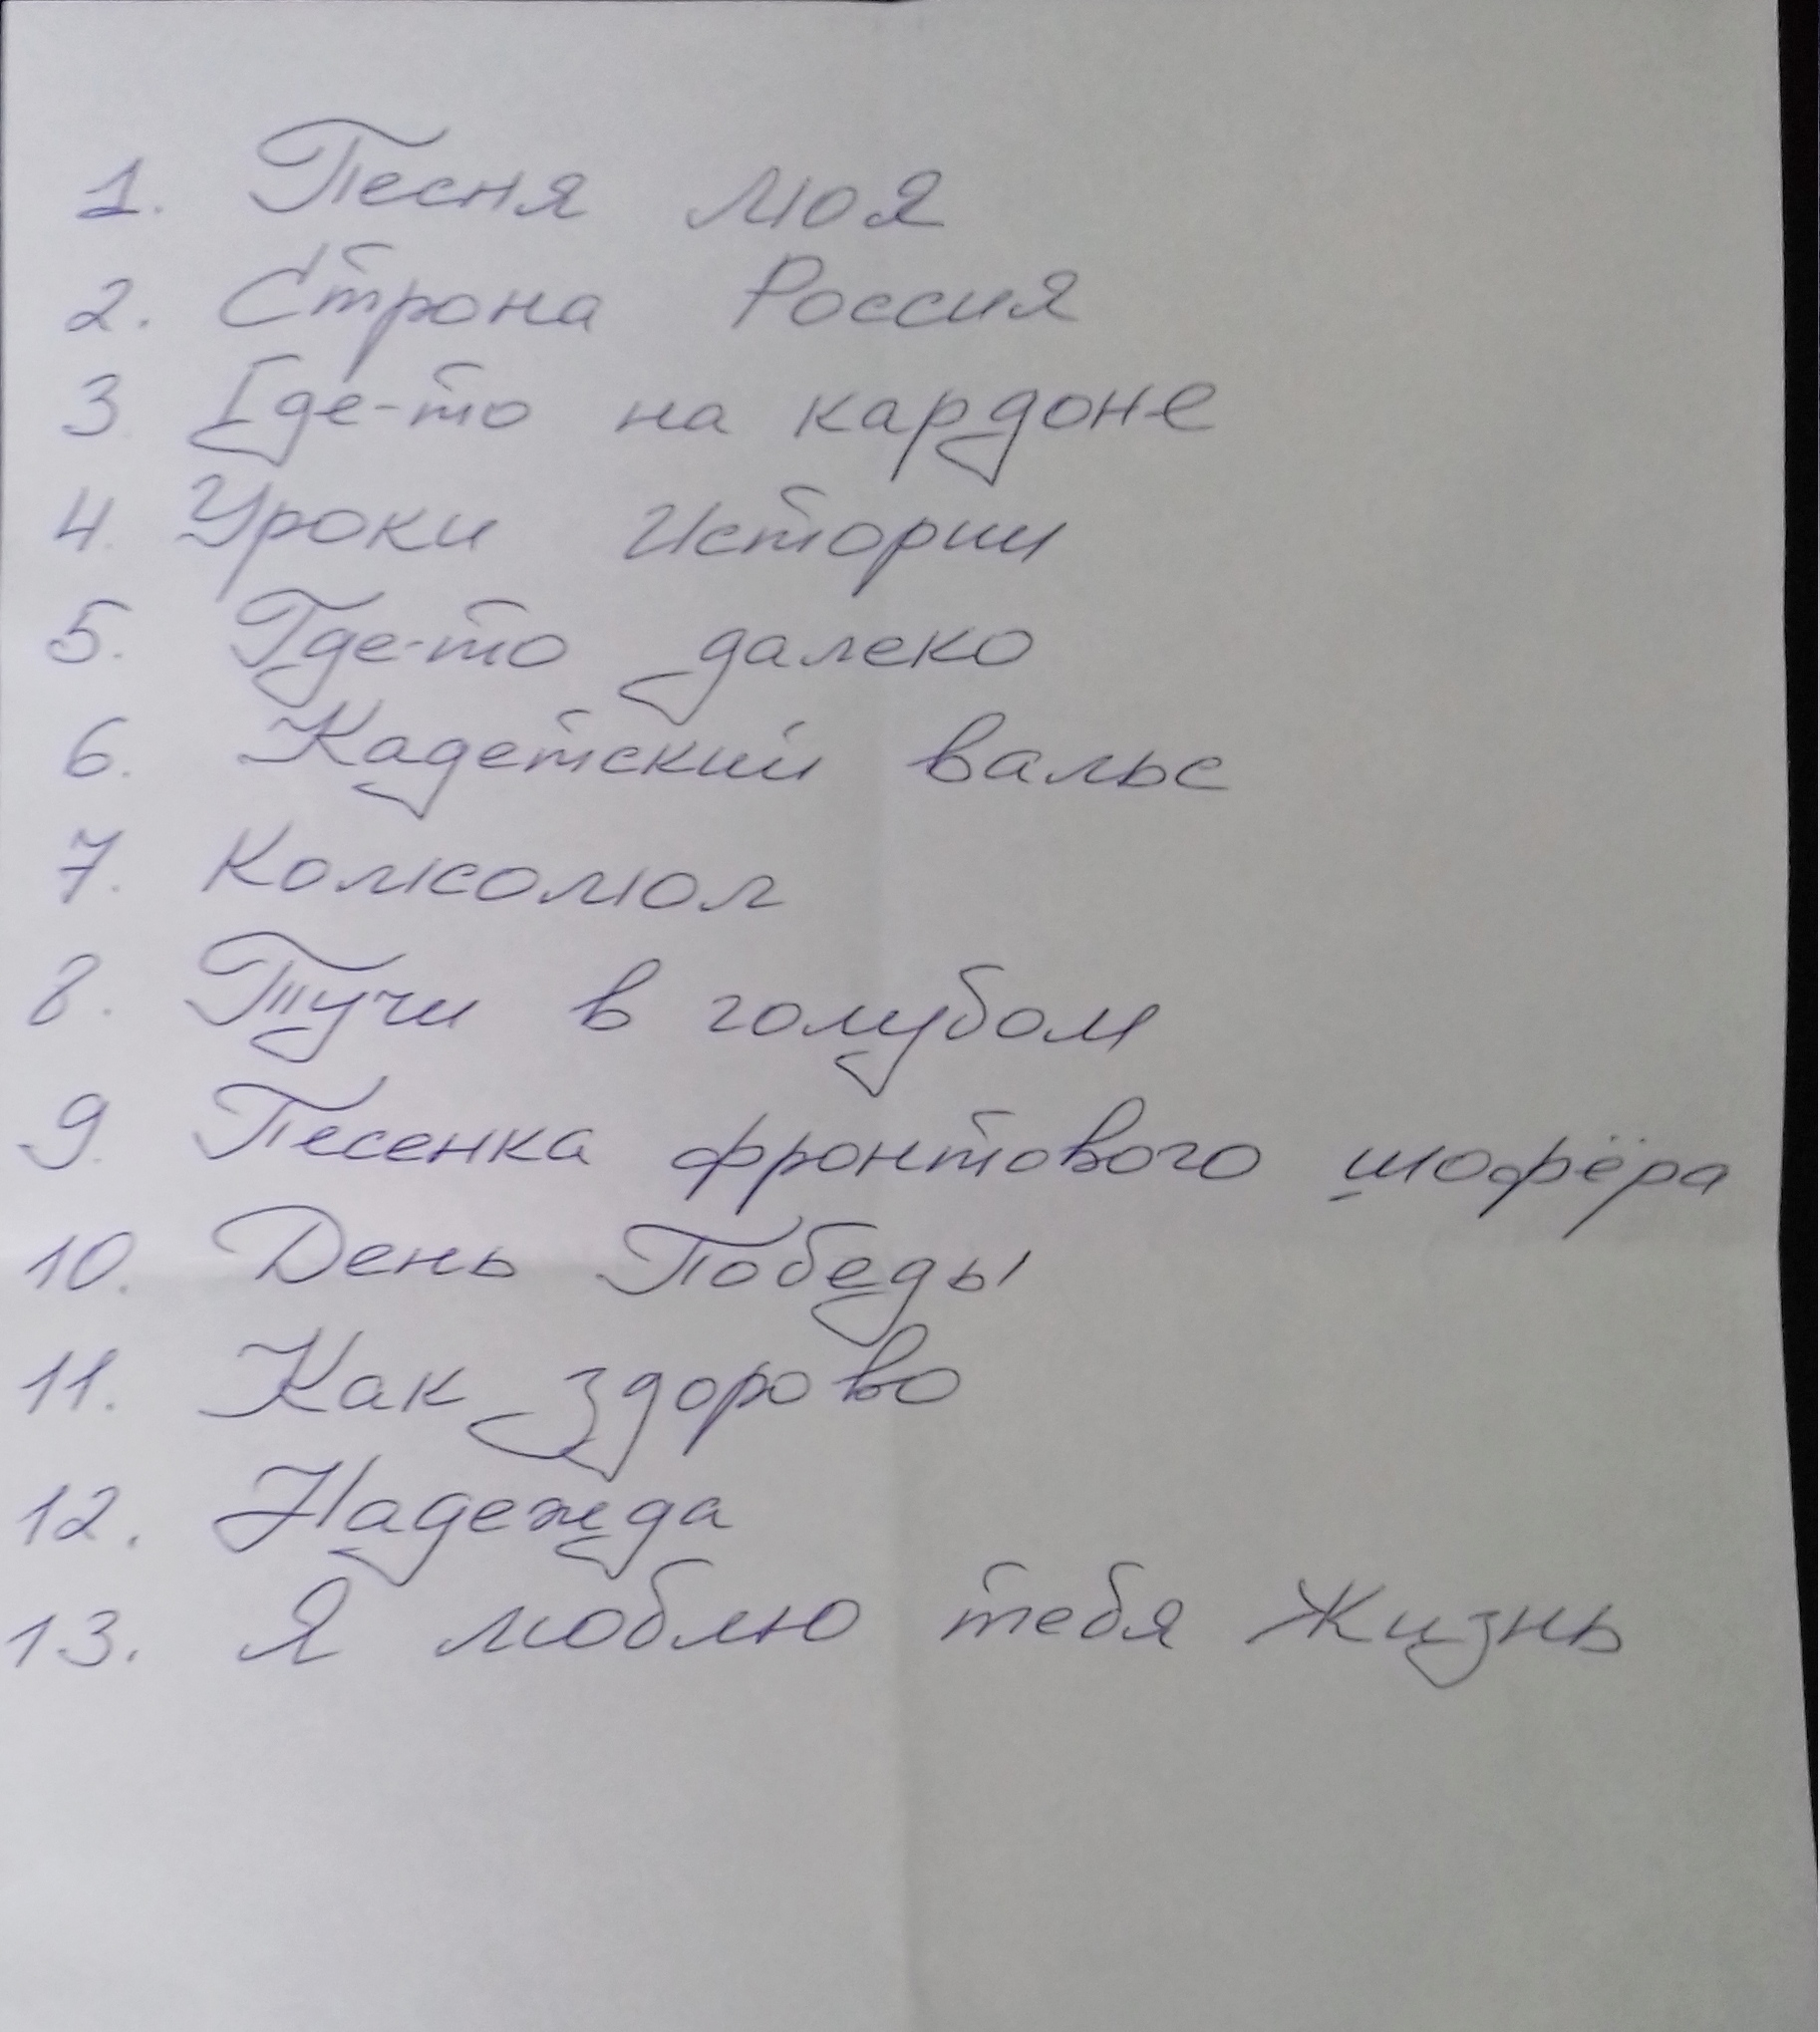 1. Песня моя
2. Строна Россия
3. Где-то на кардоне
4. Уроки Истории
5. Где-то далеко
6. Кадетский вальс
7. Комсомол
8. Тучи в голубом
9. Песенка фронтового шофёра
10. День Победы
11. Как здорово
12. Надежда
13. Я люблю тебя Жизнь